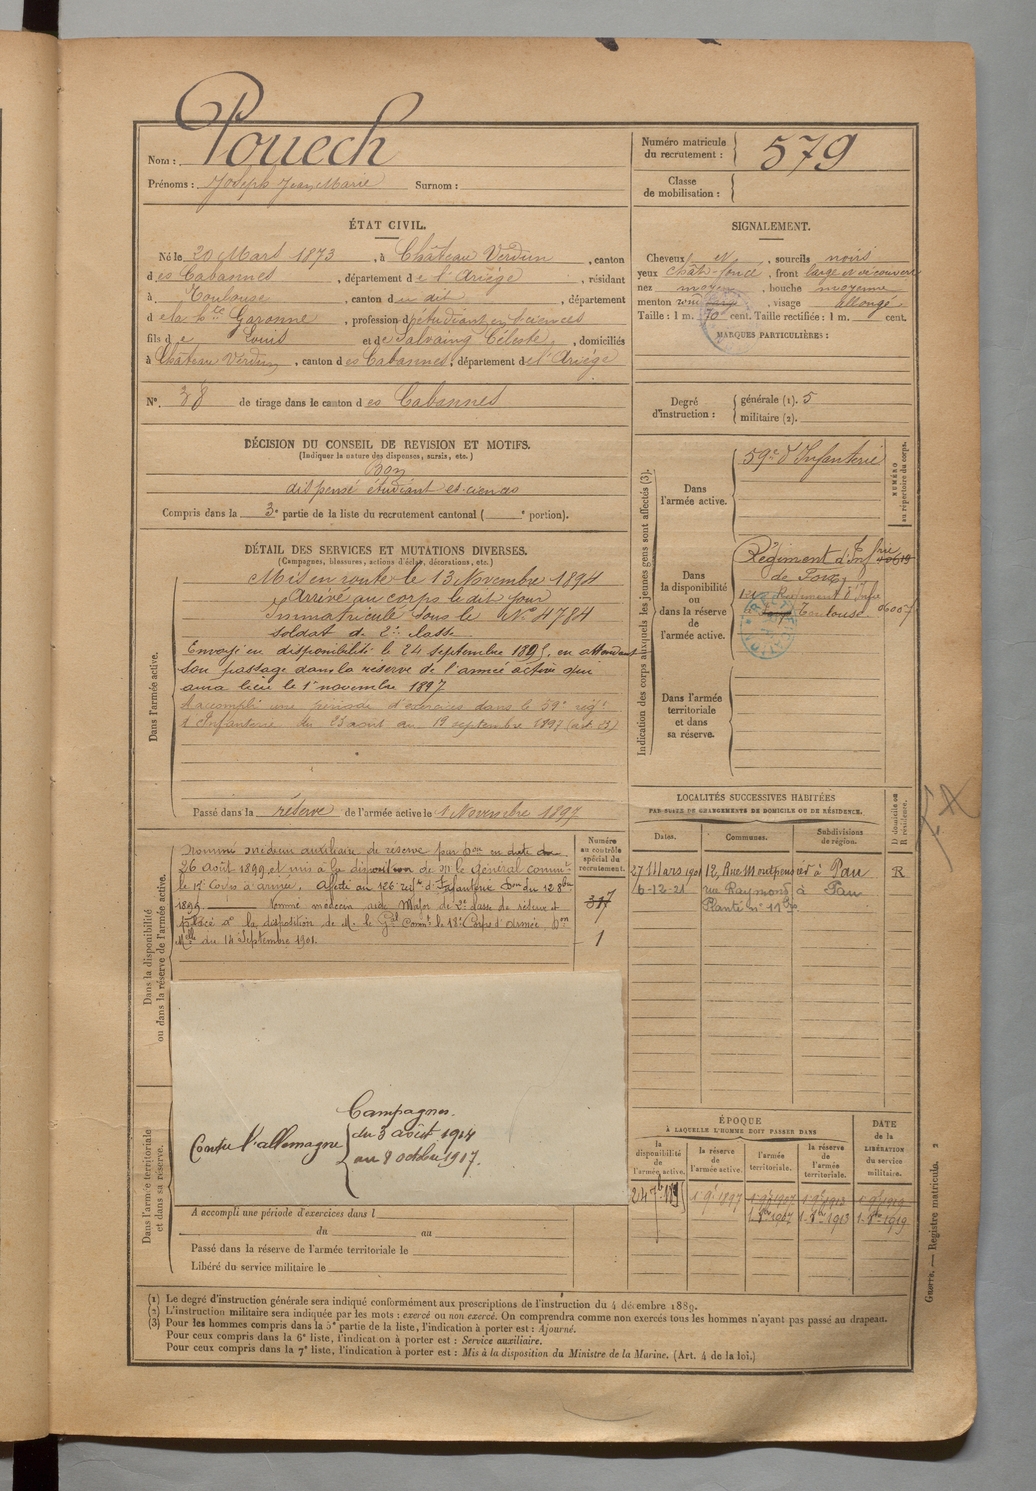 Nom : Pouech
Prénoms : Joseph Jean Marie Surnom :
Numéro matricule du recrutement : 579
Classe de mobilisation :
ÉTAT CIVIL.
Né le 20 Mars 1873, à Château Verdun, canton
des Cabannes, département de l'Ariège, résidant
à Toulouse, canton du dit, département
de la Hte Garonne, profession d'étudiant en sciences
fils de Louis et de Salvaing Céleste, domiciliés
à Château Verdun, canton des Cabannes, département de l'Ariège
N° 38 de tirage dans le canton des Cabannes
SIGNALEMENT.
Cheveux et, sourcils noirs
yeux chât. foncé, front large et découvert
nez moyen, bouche moyenne
menton rond, visage allongé
Taille : 1 m. 70 cent. Taille rectifiée : 1 m. cent.
MARQUES PARTICULIÈRES :
Degré d'instruction : générale (1). 5
militaire (2).
DÉCISION DU CONSEIL DE REVISION ET MOTIFS.
(Indiquer la nature des dispenses, sursis, etc.)
Bon
dispensé étudiant ès-sciences
Compris dans la 3e partie de la liste du recrutement cantonal ( e portion).
DÉTAIL DES SERVICES ET MUTATIONS DIVERSES.
(Campagnes, blessures, actions d'éclat, décorations, etc.)
Dans l'armée active.
Mis en route le 13 Novembre 1894
Arrivé au corps le dit jour
Immatriculé sous le N° 4784
soldat de 2e classe
Envoyé en disponibilité le 24 septembre 1895, en attendant
son passage dans la réserve de l'armée active qui
aura lieu le 1er novembre 1897
A accompli une période d'exercices dans le 59e régt
d'Infanterie du 23 août au 19 septembre 1897
Passé dans la réserve de l'armée active le 1 Novembre 1897
Indication des corps auxquels les jeunes gens sont affectés (3).
Dans l'armée active.
59e d'Infanterie
NUMÉRO au répertoire du corps.
Dans la disponibilité ou dans la réserve de l'armée active.
Régiment d'Inf
de Foix
Régiment d'Infie
Toulouse 06007
Dans l'armée territoriale et dans sa réserve.
LOCALITÉS SUCCESSIVES HABITÉES
PAR SUITE DE CHANGEMENTS DE DOMICILE OU DE RÉSIDENCE.
Dates. Communes. Subdivisions de région. D domicile ou R résidence.
27 Mars 1901 12, Rue Montpensier à Pau R
6-12-21 rue Raymond à Pau
Planté n° 11
Dans la disponibilité ou dans la réserve de l'armée active.
Numéro au contrôle spécial du recrutement.
317
1
Nommé médecin auxiliaire de réserve par Don en date du
26 Août 1899 et mis à la disposition de Mr le Général commt
le 17e Corps d'armée. Affecté au 126e régt d'Infanterie
1899. Nommé médecin aide Major de 2e classe de réserve et
placé à la disposition de M. le Gal Commt le 18e Corps d'armée, Don
Mlle du 14 Septembre 1901.
Campagnes.
Contre l'allemagne du 3 août 1914
au 8 octobre 1917.
Dans l'armée territoriale et dans sa réserve.
A accompli une période d'exercices dans l
du au
Passé dans la réserve de l'armée territoriale le
Libéré du service militaire le
ÉPOQUE
À LAQUELLE L'HOMME DOIT PASSER DANS
la disponibilité de l'armée active. la réserve de l'armée active. l'armée territoriale. la réserve de l'armée territoriale. DATE de la LIBÉRATION du service militaire.
1 9bre 1897 1 9bre 1907 1 9bre 1913 1 9bre 1919
Guerre. — Registre matricule. 2
(1) Le degré d'instruction générale sera indiqué conformément aux prescriptions de l'instruction du 4 décembre 1889.
(2) L'instruction militaire sera indiquée par les mots : exercé ou non exercé. On comprendra comme non exercés tous les hommes n'ayant pas passé au drapeau.
(3) Pour les hommes compris dans la 5e partie de la liste, l'indication à porter est : Ajourné.
Pour ceux compris dans la 6e liste, l'indication à porter est : Service auxiliaire.
Pour ceux compris dans la 7e liste, l'indication à porter est : Mis à la disposition du Ministre de la Marine. (Art. 4 de la loi.)